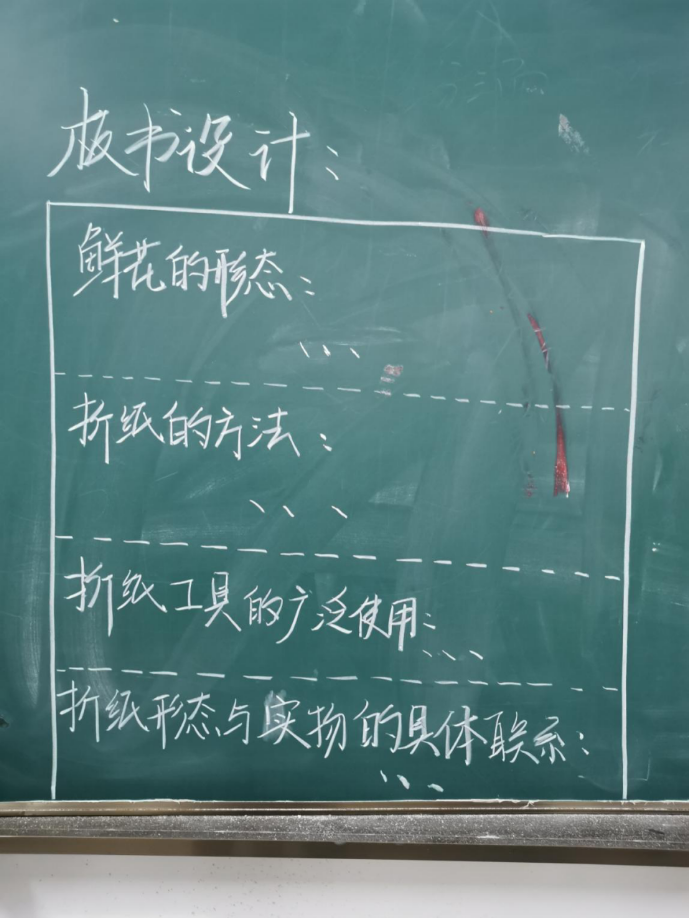 板书设计:
鲜花的形态:
...
折纸的方法:
...
折纸工具的广泛使用:
...
折纸形态与实物的具体联系:
...